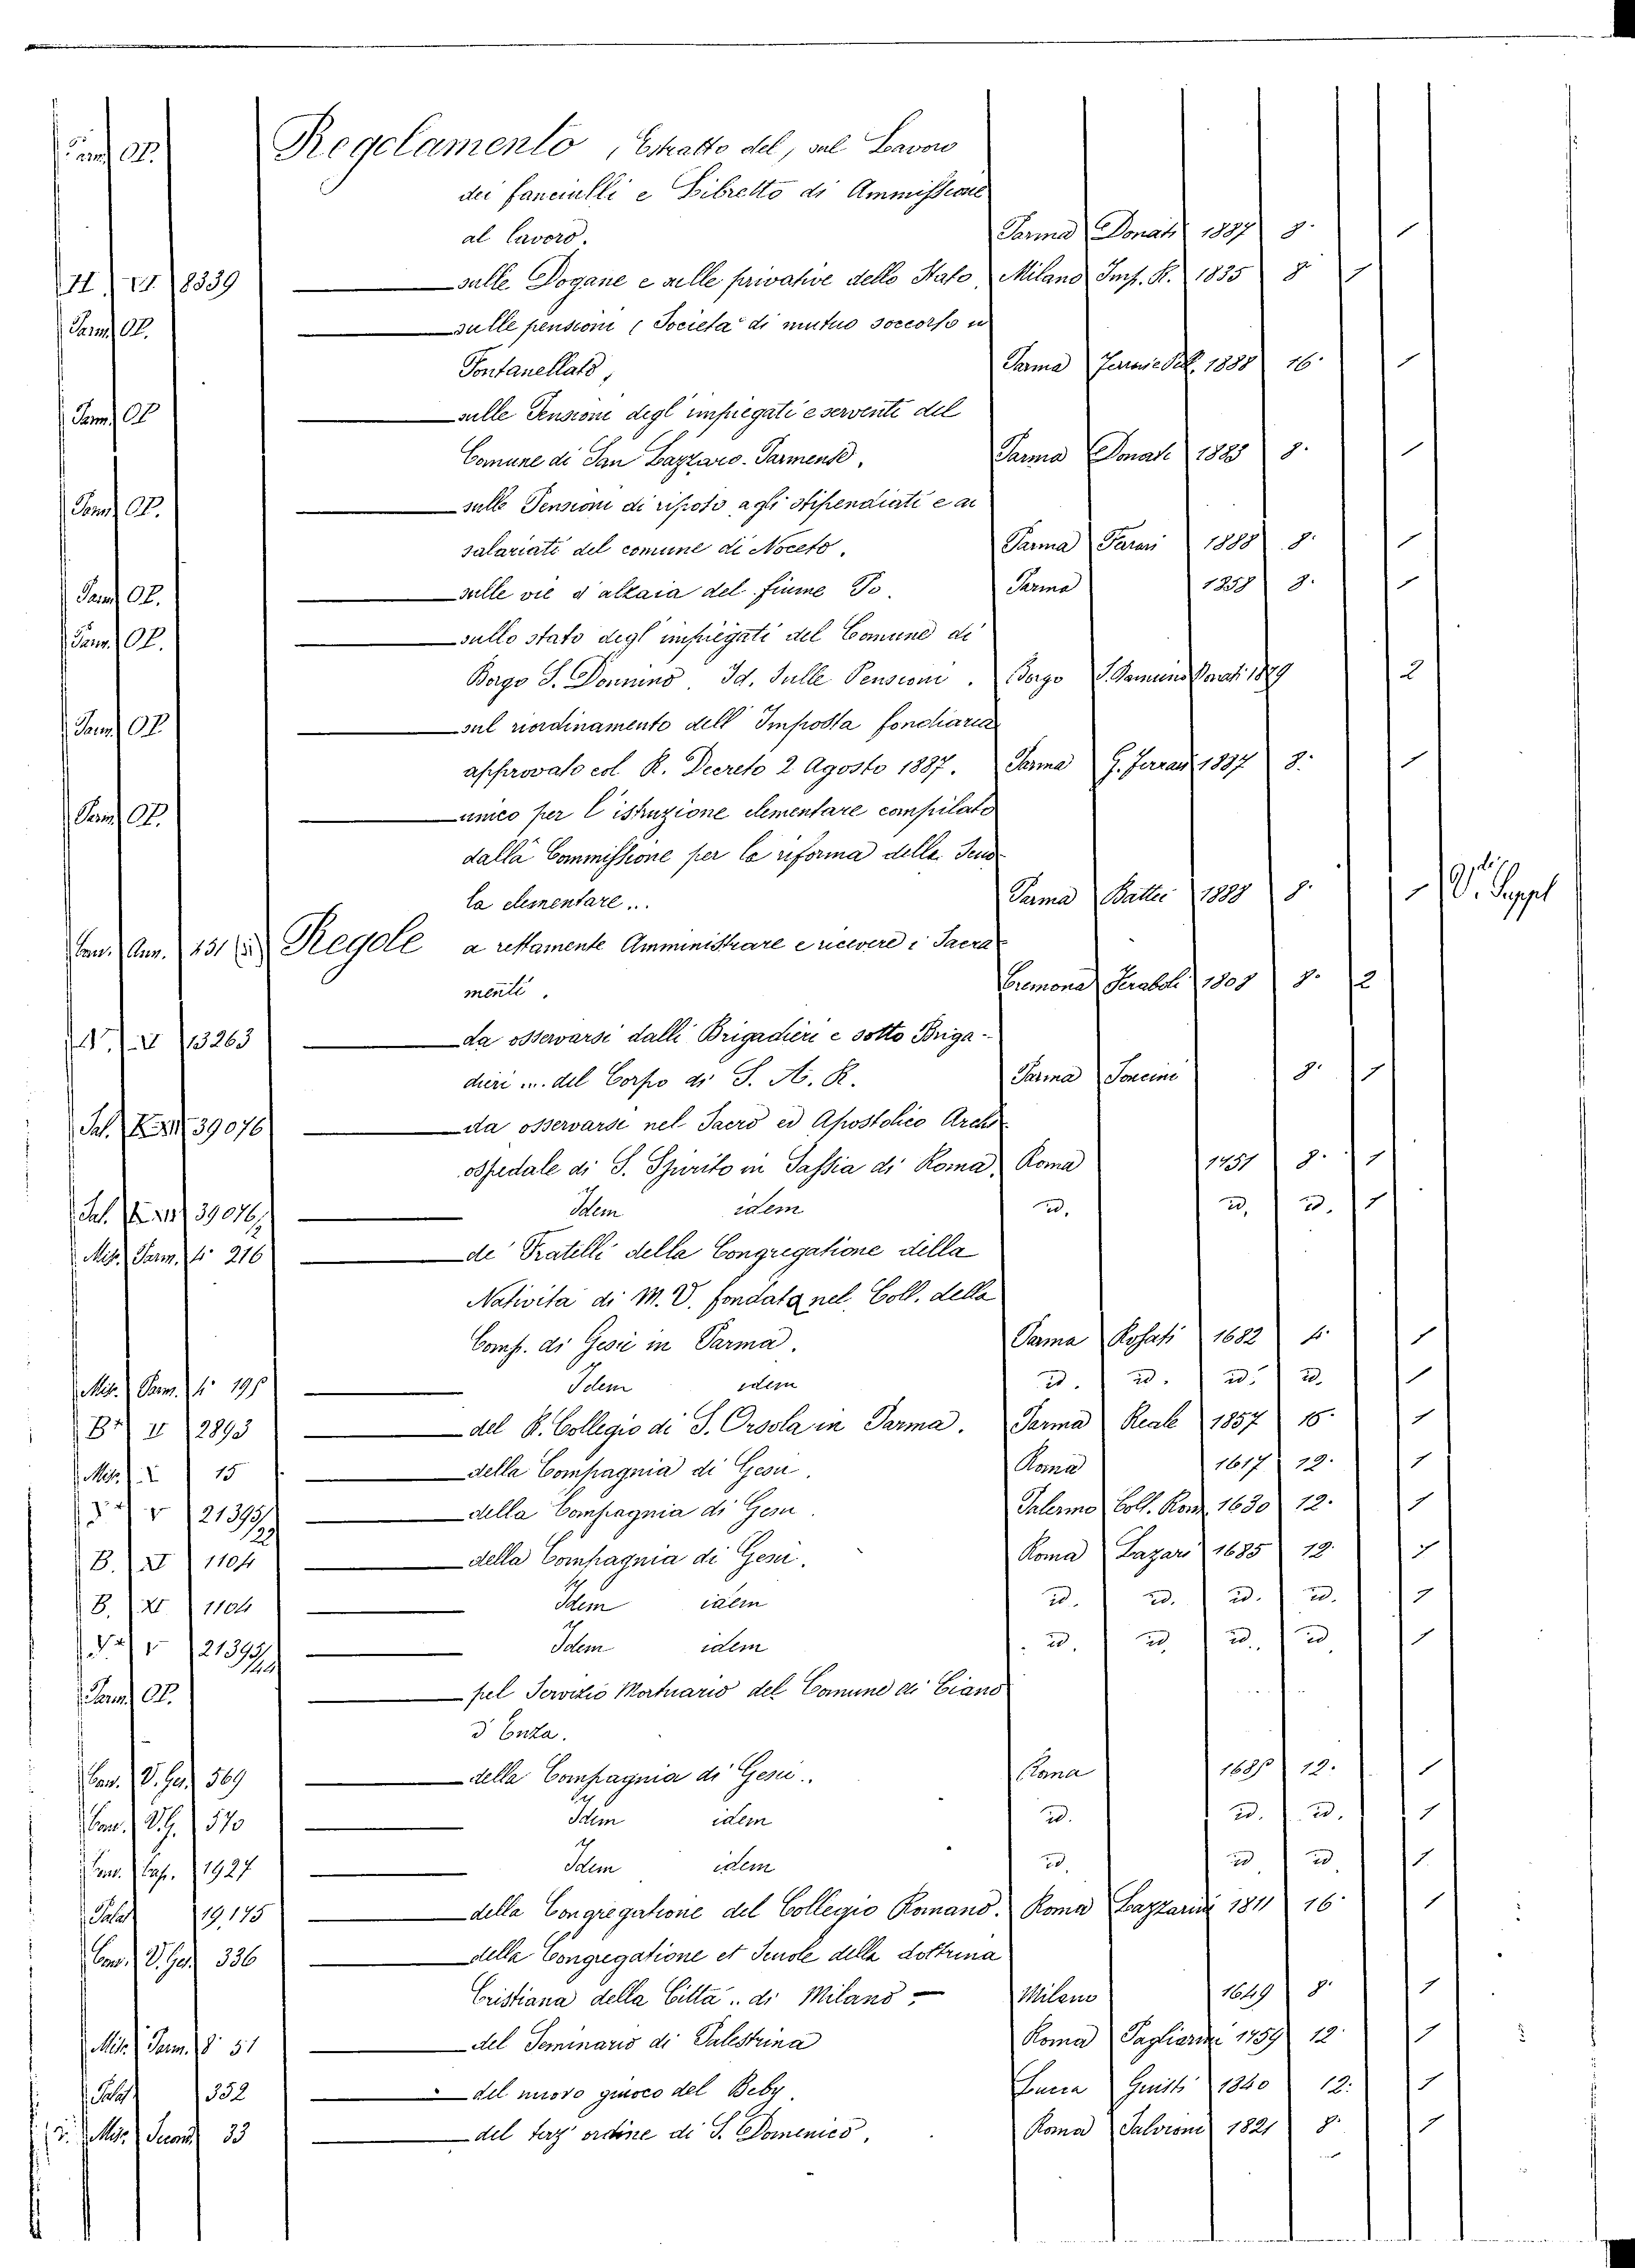 Parm. OP. Regolamento, Estratto del, sul Lavoro
dei fanciulli e Libretto di Ammissione
al lavoro. Parma Donati 1887 8. 1
H. VI 8339 — sulle Dogane e sulle privative dello Stato, Milano Imp. R. 1835 8 1
Parm. OP. — sulle pensioni, Societa di mutuo soccorso in
Fontanellato, Parma 1888 16. 1
Parm. OP — sulle Pensioni degl' impiegati e servente del
Comune di San Lazzaro-Parmense. Parma Donati 1885 8. 1
Parm. OP. — sulle Pensioni di riposo agli stipendiati e ai
salariati del comune di Noceto. Parma Ferrari 1888 8. 1
Parm. OP. — sulle vie d'alzaia del fiume Po. Parma 1858 8. 1
Parm. OP. — sullo stato degl' impiegati del Comune di
Borgo S. Donnino. Id. sulle Pensioni. Borgo S. Donnino Donati 1879 2
Parm. OP — sul riordinamento dell' Imposta fondiaria
approvato col R. Decreto 2 Agosto 1887. Parma G. Ferrari 1887 8. 1
Parm. OP. — unico per l'istruzione elementare compilato
dalla Commissione per la riforma della Scuo-
la elementare... Parma Battei 1889 8. 1 V. Suppl
Con. Ann. 431 Regole a rettamente Amministrare e ricevere i Sacra-
menti. Cremona Feraboli 1808 8. 2
13263 — da osservarsi dalli Brigadieri e sotto Briga-
dieri ... del Corpo di S. A. R. Parma Soncini 8. 1
Sal. 39076 — da osservarsi nel Sacro ed Apostolico Archi-
ospedale di S. Spirito in Sassia di Roma, Roma 1751 8. 1
Sal. 39076/2 — Idem idem id. id. id. 1
Mis. Parm. 4° 216 — de' Fratelli della Congregatione della
Nativita di M. V. fondata nel Coll. della
Comp. di Gesù in Parma. Parma Rosati 1682 4. 1
Mis. Parm. 4° 195 — Idem idem id. id. id. id. 1
B II 2893 — del R. Collegio di S. Orsola in Parma. Parma Reale 1857 16. 1
Mis. 15 — della Compagnia di Gesu. Roma 1617 12. 1
V 21395/22 — della Compagnia di Gesu. Palermo Coll. Rom. 1630 12. 1
B. XI 1104 — della Compagnia di Gesù. Roma Lazari 1685 12. 1
B. XI 1104 — Idem idem id. id. id. id. 1
V 21395 — Idem idem id. id. id. id 1
Parm. OP. — pel Servizio Mortuario del Comune di Ciano
d'Enza.
Con. V. Ges. 569 — della Compagnia di Gesù.. Roma 1685 12. 1
Con. V. G. 570 — Idem idem id. id. id. 1
Con. Cap. 1927 — Idem idem id. id id 1
Palat 19,175 — della Congregatione del Collegio Romano. Roma Lazzarini 1811 16. 1
Con. V. Ges 336 — della Congregatione et Scuole della dottrina
Cristiana della Citta .. di Milano. — Milano 1649 8. 1
Mis. Parm. 8° 51 — del Seminario di Palestrina Roma Pagliarini 1759 12. 1
Palat 352 — del nuovo giuoco del Beby. Lucca Giusti 1840 12. 1
Mis. Second 33 — del terz' ordine di S. Domenico. Roma Salvioni 1821 8. 1